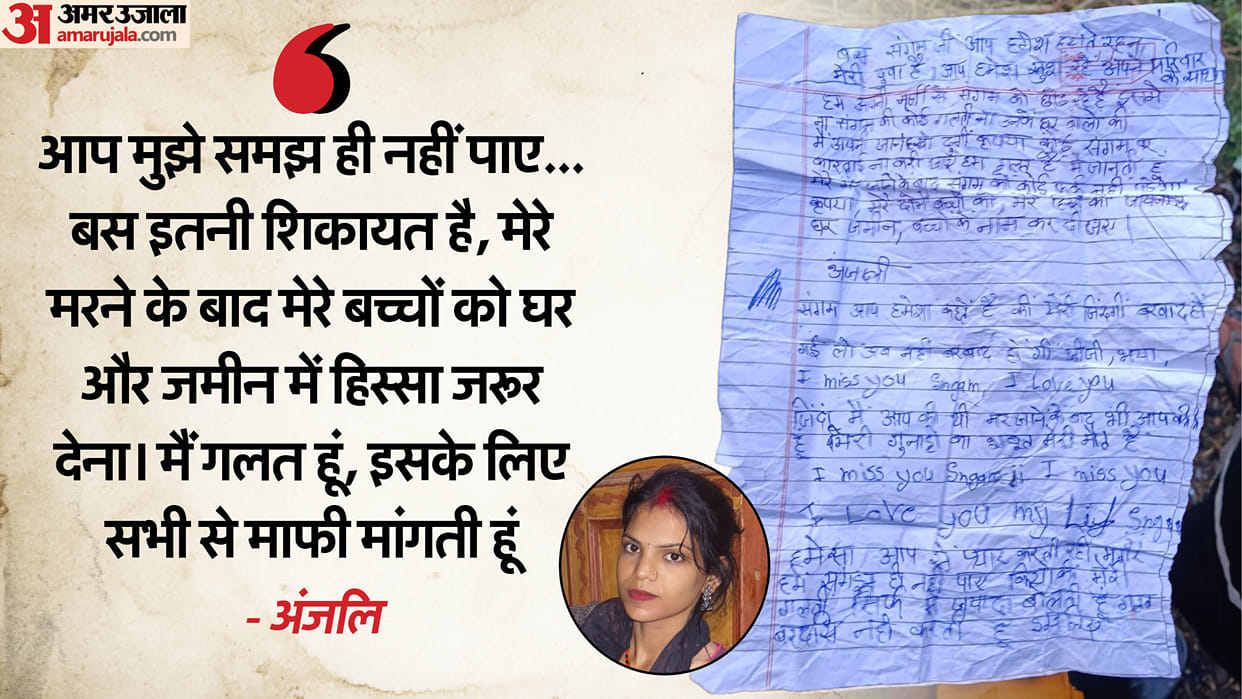 अमर उजाला
amarujala.com
आप मुझे समझ ही नहीं पाए...
बस इतनी शिकायत है, मेरे
मरने के बाद मेरे बच्चों को घर
और जमीन में हिस्सा जरूर
देना। मैं गलत हूं, इसके लिए
सभी से माफी मांगती हूं
- अंजलि
बस संगम जी आप हमेशा रहना
मेरी दुआ है, आप हमेशा खुश रहे अपने परिवार
के साथ
हम अपनी मर्जी से संगम को छोड़ रहे है इसमे
ना संगम की कोई गलती ना उनके घर वालो की
मै अपने कृपया कोई संगम पर
कारवाई ना करें मै जानती हू
मेरे के बाद संगम को कोई फर्क नहीं
कृपया मेरे दोनो बच्चो को, मेरे हिस्से का
घर जमीन, बच्चो के नाम कर दीजिए।
अंजली
संगम आप हमेशा कहते है की मेरी जिंदगी बरबाद हो
गई लो अब नहीं बरबाद होगी
I miss you Sngam, I love you
जिंदा में आपकी थी मर जाने के बाद भी आपकी
हू मेरी गुनाहो का मेरी मौत है
I miss you Sngam ji I miss you
I Love you my Sngam
हमेसा आप से प्यार करती रही, मगर
हमे समझ ही नहीं पाए मेरी
गलती सिर्फ बोलती हू गलत
नही करती हू